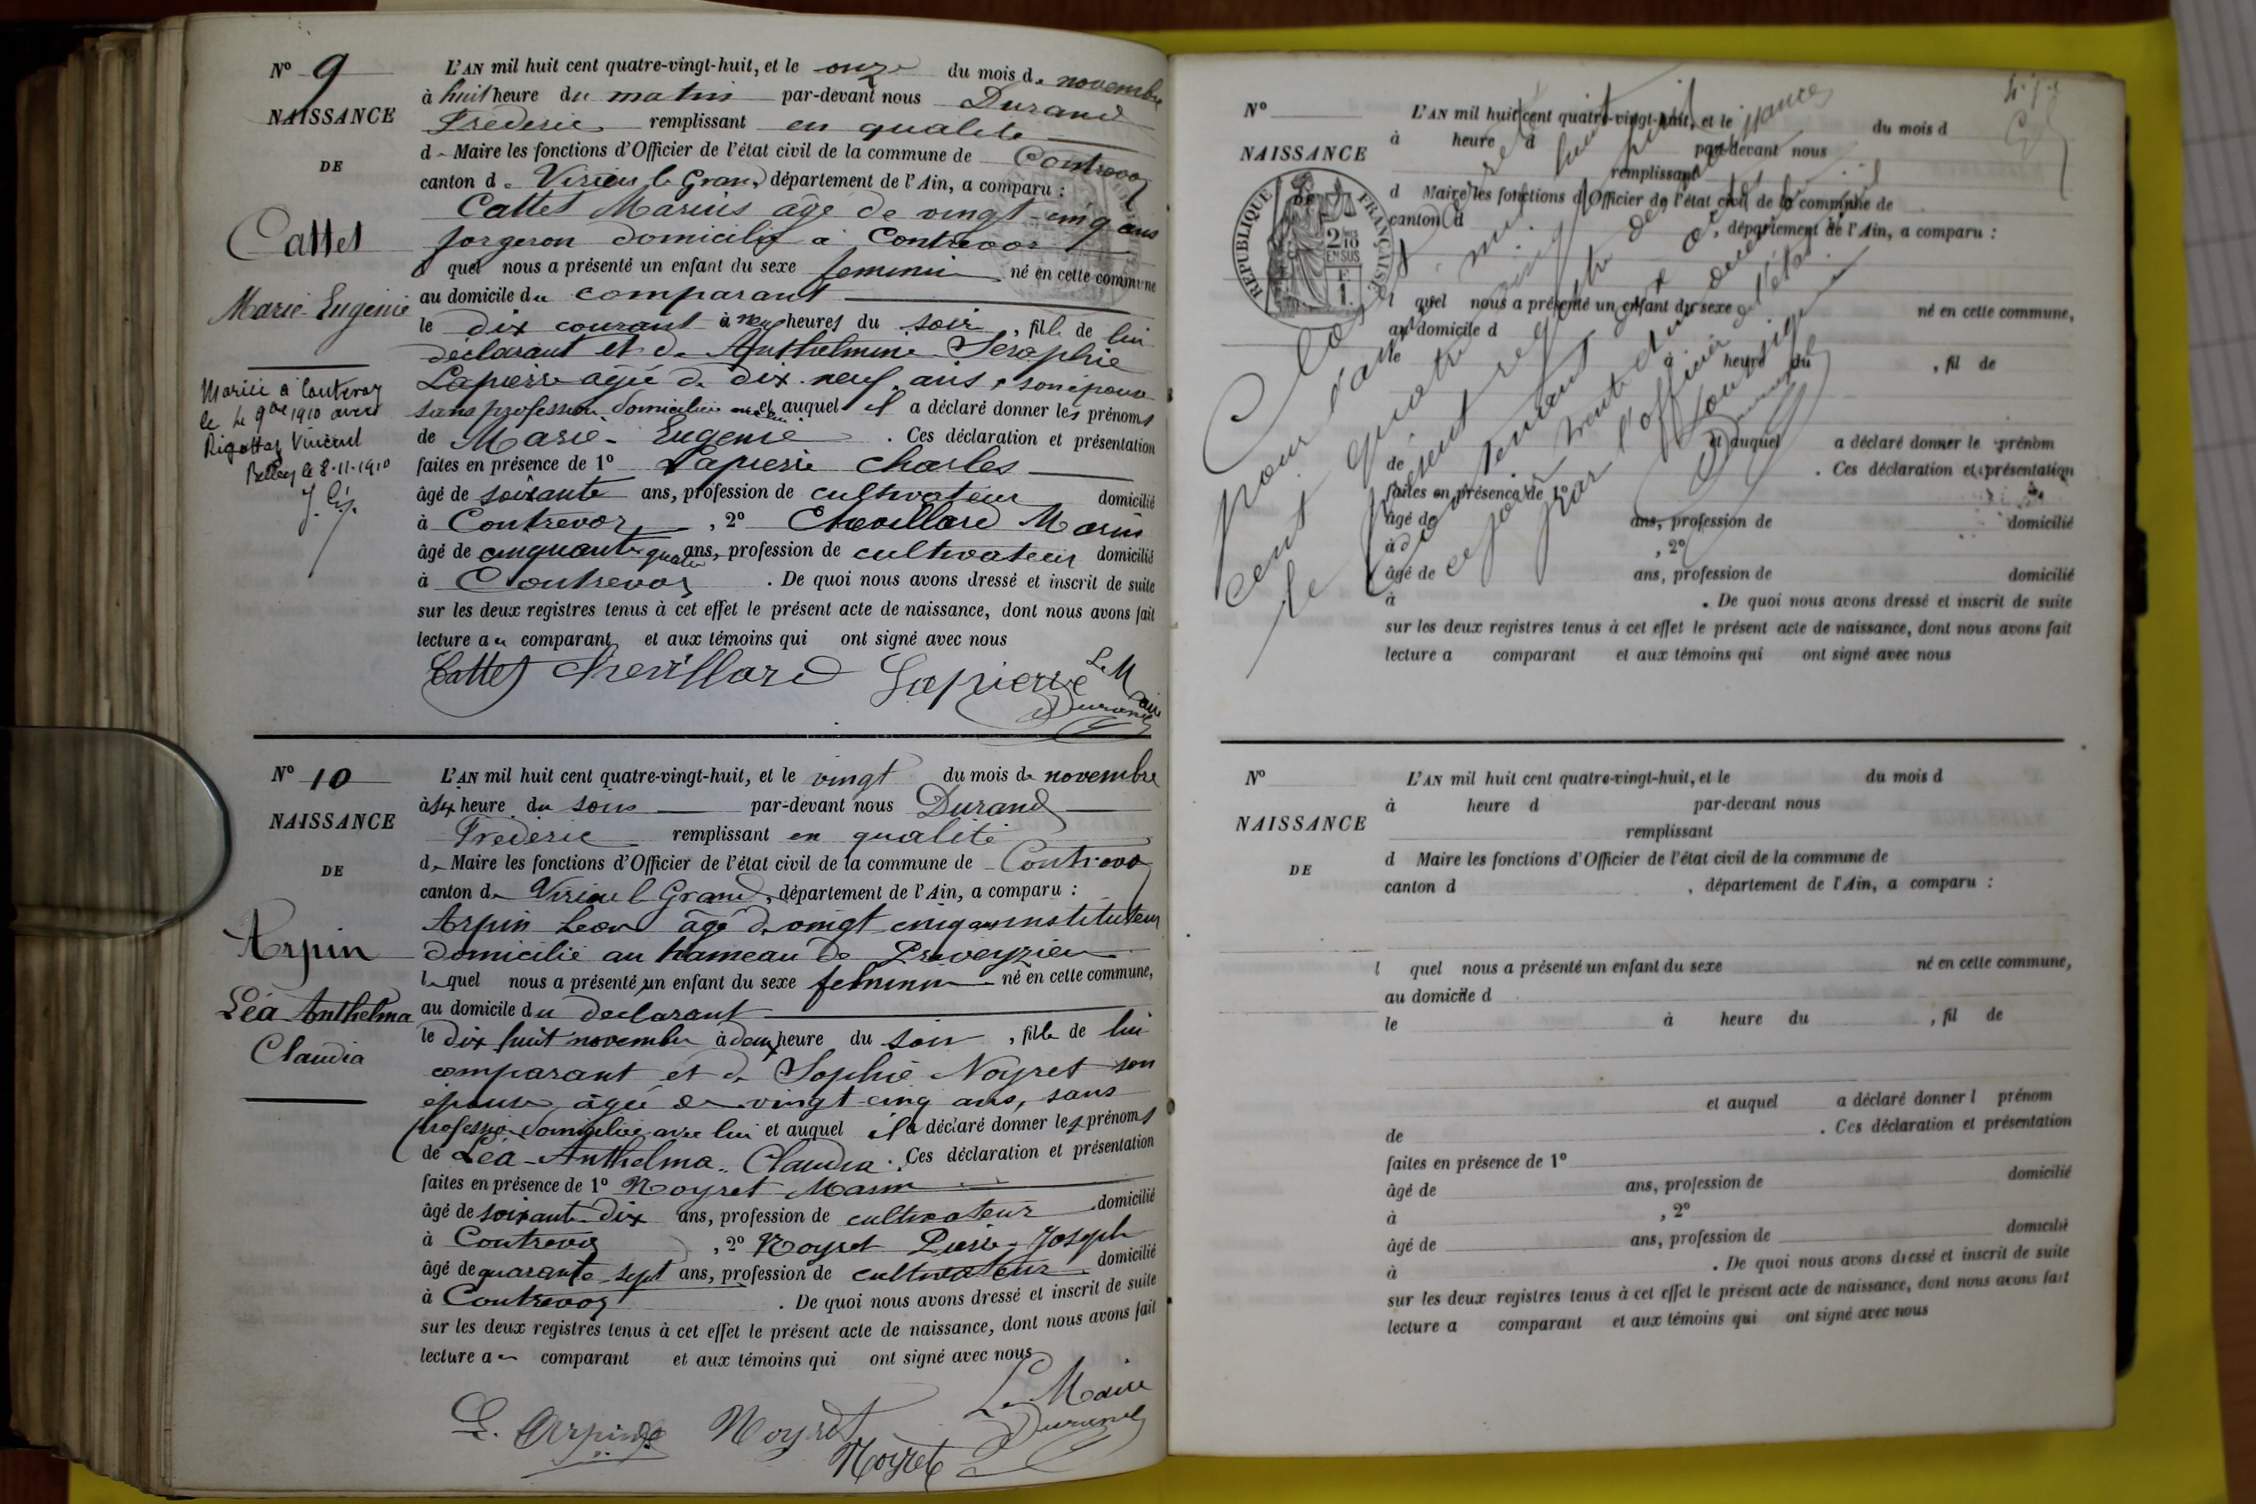 N° 9
NAISSANCE
DE
Cattet
Marie-Eugénie
Mariée à Contrevoz
le 4 9bre 1910 avec
Rigottaz Vincent
Belley le 8-11-1910
L'AN mil huit cent quatre-vingt-huit, et le onze du mois de novembre
à huit heure du matin par-devant nous Durand
Frédéric remplissant en qualité
de Maire les fonctions d'Officier de l'état civil de la commune de Contrevoz
canton de Virieu le Grand, département de l'Ain, a comparu :
Cattet Marius âgé de vingt-cinq ans
forgeron domicilié à Contrevoz
quel nous a présenté un enfant du sexe feminin né en cette commune
au domicile du comparant
le dix courant à neuf heures du soir, fille de lui
déclarant et de Anthelmine Séraphie
Lapierre agée de dix-neuf ans, son épouse
sans profession domiciliée et auquel il a déclaré donner les prénoms
de Marie-Eugénie. Ces déclaration et présentation
faites en présence de 1° Lapierre Charles
âgé de soixante ans, profession de cultivateur domicilié
à Contrevoz, 2° Chevillard Marin
âgé de cinquante quatre ans, profession de cultivateur domicilié
à Contrevoz. De quoi nous avons dressé et inscrit de suite
sur les deux registres tenus à cet effet le présent acte de naissance, dont nous avons fait
lecture au comparant et aux témoins qui ont signé avec nous
Cattet Chevillard Lapierre Le Maire
Durand
N° 10
NAISSANCE
DE
Arpin
Léa Anthelma
Claudia
L'AN mil huit cent quatre-vingt-huit, et le vingt du mois de novembre
à six heure du soir par-devant nous Durand
Frédéric remplissant en qualité
de Maire les fonctions d'Officier de l'état civil de la commune de Contrevoz
canton de Virieu le Grand, département de l'Ain, a comparu :
Arpin Léon âgé de vingt cinq ans instituteur
domicilié au hameau de Preveyzieu
le quel nous a présenté un enfant du sexe feminin né en cette commune,
au domicile du declarant
le dix huit novembre à deux heure du soir, fille de lui
comparant et de Sophie Noyret son
épouse âgée de vingt-cinq ans, sans
profession domiciliée avec lui et auquel il a déclaré donner les prénoms
de Léa-Anthelma-Claudia. Ces déclaration et présentation
faites en présence de 1° Noyret Marin
âgé de soixante-dix ans, profession de cultivateur domicilié
à Contrevoz, 2° Noyret Pierre-Joseph
âgé de quarante-sept ans, profession de cultivateur domicilié
à Contrevoz. De quoi nous avons dressé et inscrit de suite
sur les deux registres tenus à cet effet le présent acte de naissance, dont nous avons fait
lecture au comparant et aux témoins qui ont signé avec nous
Le Maire
L. Arpin Noyret Durand
Noyret
N°
NAISSANCE
DE
RÉPUBLIQUE FRANÇAISE
2/10
EN SUS
1.
L'AN mil huit cent quatre-vingt-huit, et le du mois d
à heure d par-devant nous
remplissant
d Maire les fonctions d'Officier de l'état civil de la commune de
canton d , département de l'Ain, a comparu :
l quel nous a présenté un enfant du sexe né en cette commune,
au domicile d
le à heure du , fil de
et auquel a déclaré donner le prénom
de . Ces déclaration et présentation
faites en présence de 1°
âgé de ans, profession de domicilié
à , 2°
âgé de ans, profession de domicilié
à . De quoi nous avons dressé et inscrit de suite
sur les deux registres tenus à cet effet le présent acte de naissance, dont nous avons fait
lecture a comparant et aux témoins qui ont signé avec nous
Clos et arrêté
pour l'an mil huit
cent quatre vingt huit
le présent registre de naissances
contenant dix actes
ce jour trente et un décembre
par l'officier de l'état civil
soussigné
Durand
N°
NAISSANCE
DE
L'AN mil huit cent quatre-vingt-huit, et le du mois d
à heure d par-devant nous
remplissant
d Maire les fonctions d'Officier de l'état civil de la commune de
canton d , département de l'Ain, a comparu :
l quel nous a présenté un enfant du sexe né en cette commune,
au domicile d
le à heure du , fil de
et auquel a déclaré donner l prénom
de . Ces déclaration et présentation
faites en présence de 1°
âgé de ans, profession de domicilié
à , 2°
âgé de ans, profession de domicilié
à . De quoi nous avons dressé et inscrit de suite
sur les deux registres tenus à cet effet le présent acte de naissance, dont nous avons fait
lecture a comparant et aux témoins qui ont signé avec nous